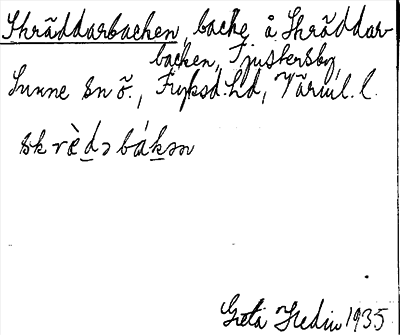 Skräddarbacken, backe å Skräddar-
backen, Tjuskersby,
Sunne sn ö., Fryksd. hd, Värml. l.
skrædə bákən
Greta Hedin 1935